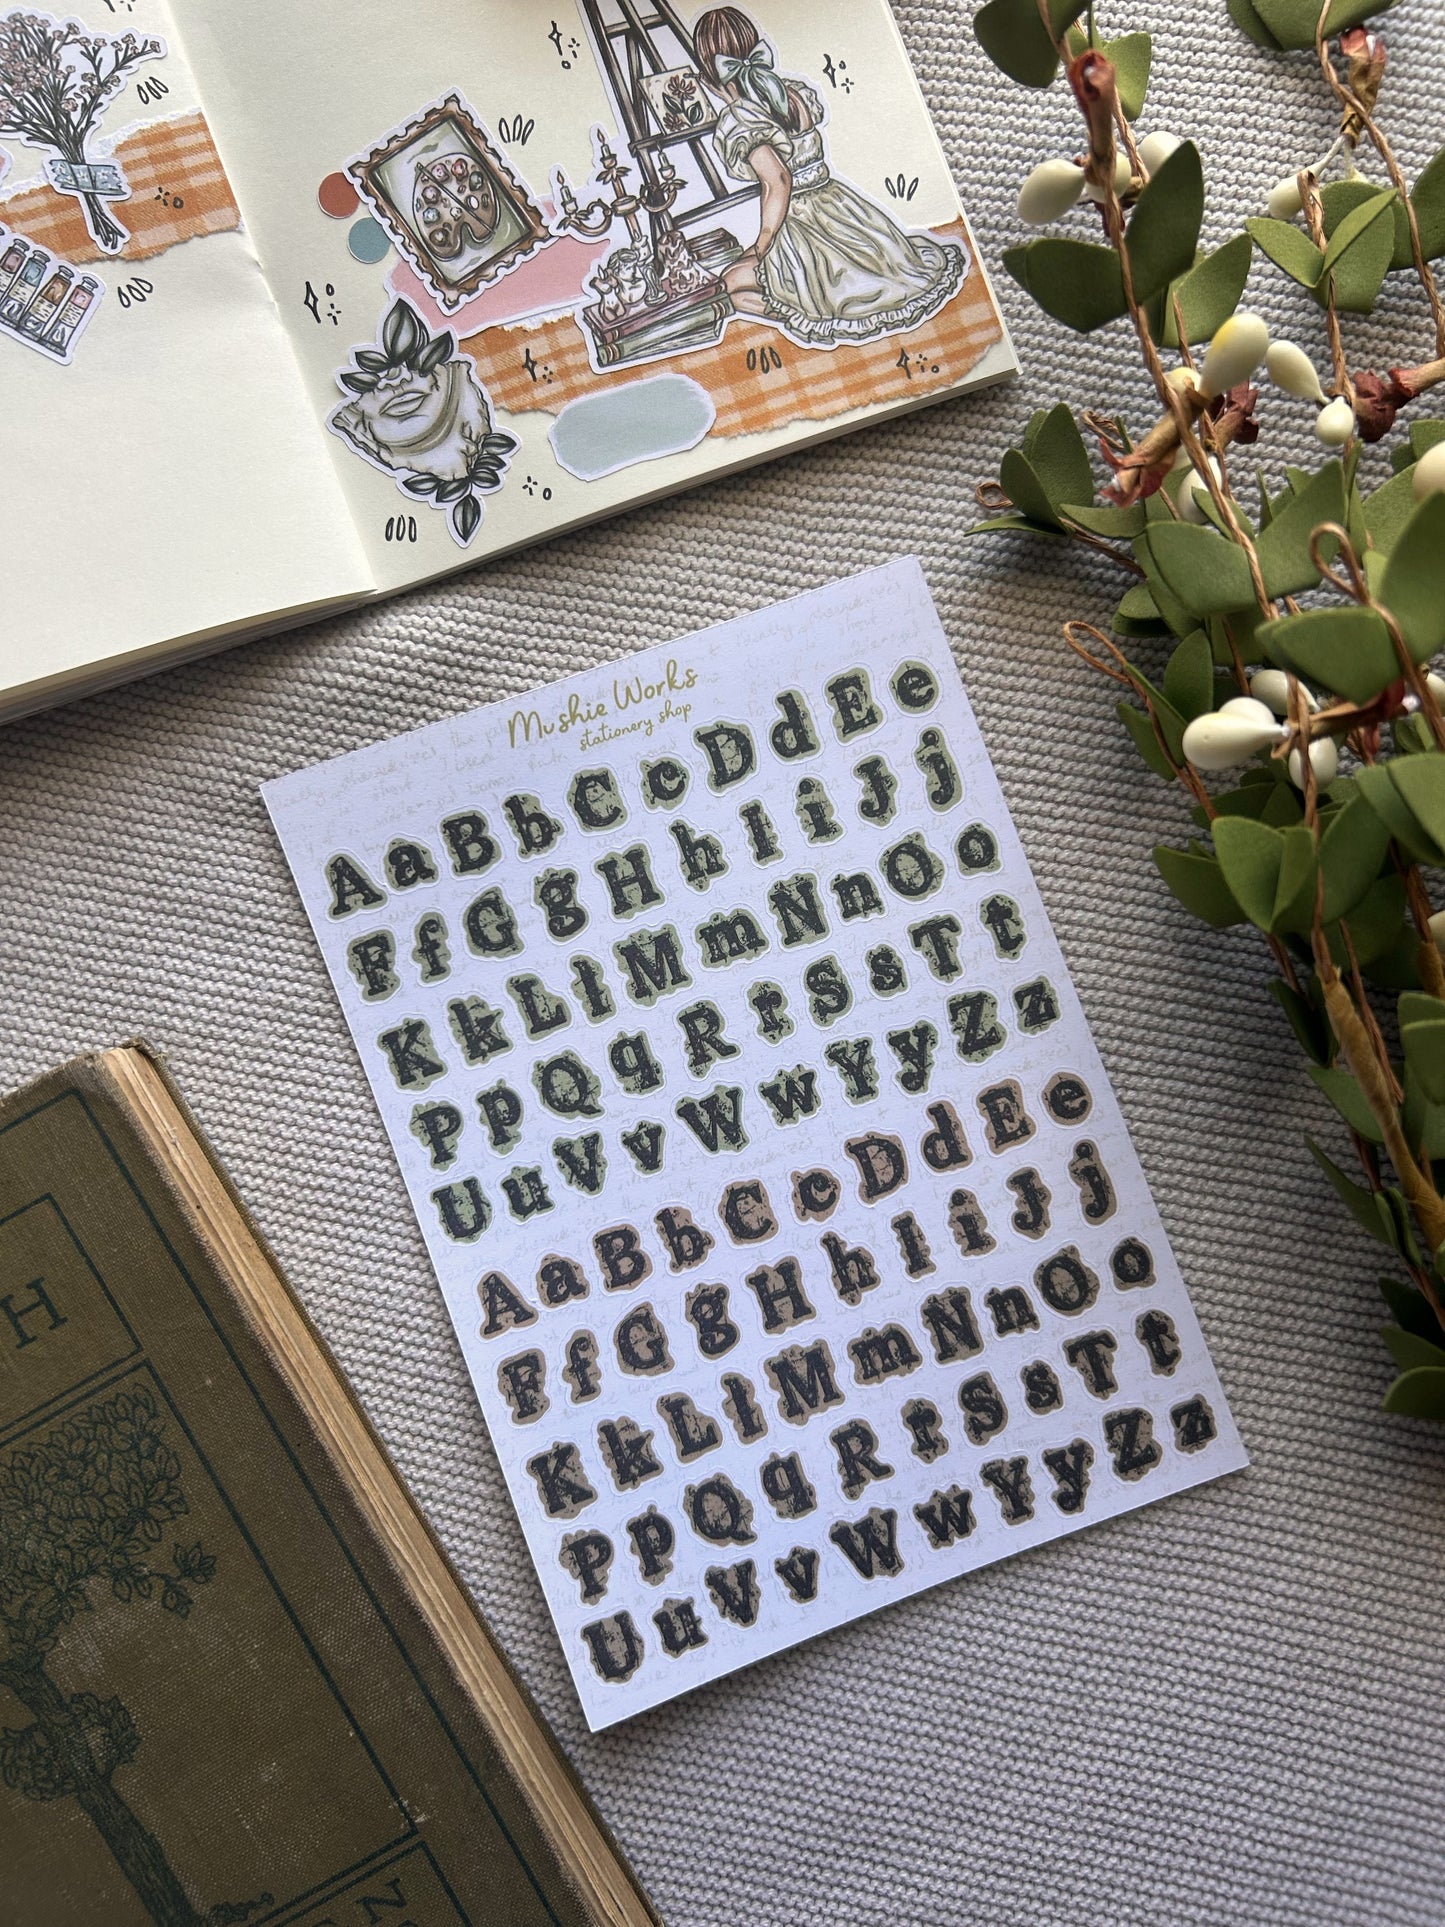 Mushie Works
stationery shop
A a B b C c D d E e
F f G g H h I i J j
K k L l M m N n O o
P p Q q R r S s T t
U u V v W w Y y Z z
A a B b C c D d E e
F f G g H h I i J j
K k L l M m N n O o
P p Q q R r S s T t
U u V v W w Y y Z z
H
N